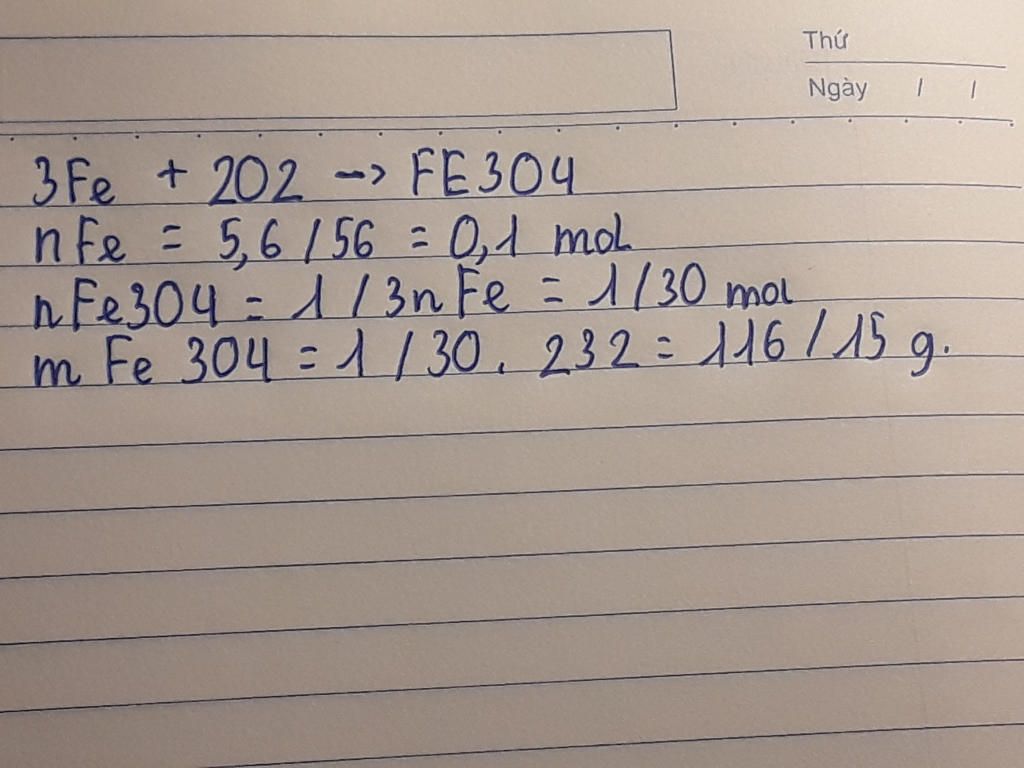 Thứ
Ngày / /
3Fe + 2O2 -> FE3O4
nFe = 5,6/56 = 0,1 mol
nFe3O4 = 1/3nFe = 1/30 mol
mFe3O4 = 1/30. 232 = 116/15 g.